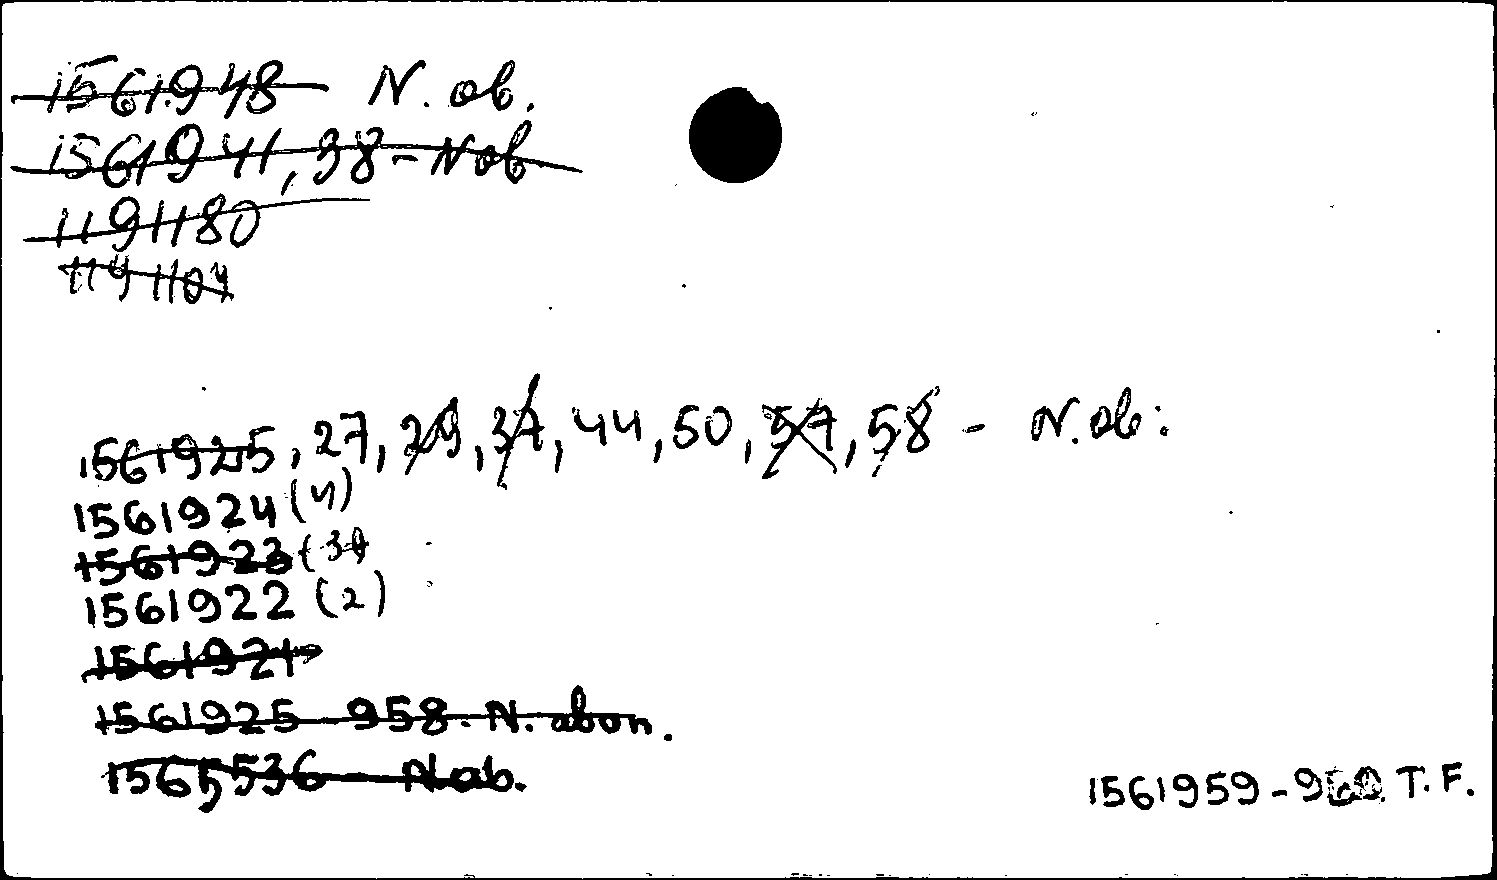 1561948 N. ab.
1561941, 38 - Nab
1191180
1191104
1561925, 27, 29, 37, 44, 50, 57, 58 - N. ab.
1561924 (4)
1561923 (3)
1561922 (2)
1561921
1561925 - 958. N. abon.
1565536 - Nab.
1561959 - 960 T. F.